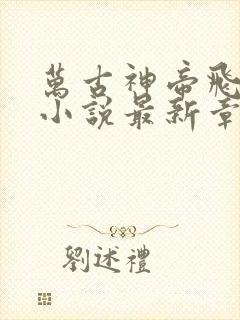 萬古神帝飛
小說最新章
劉述禮